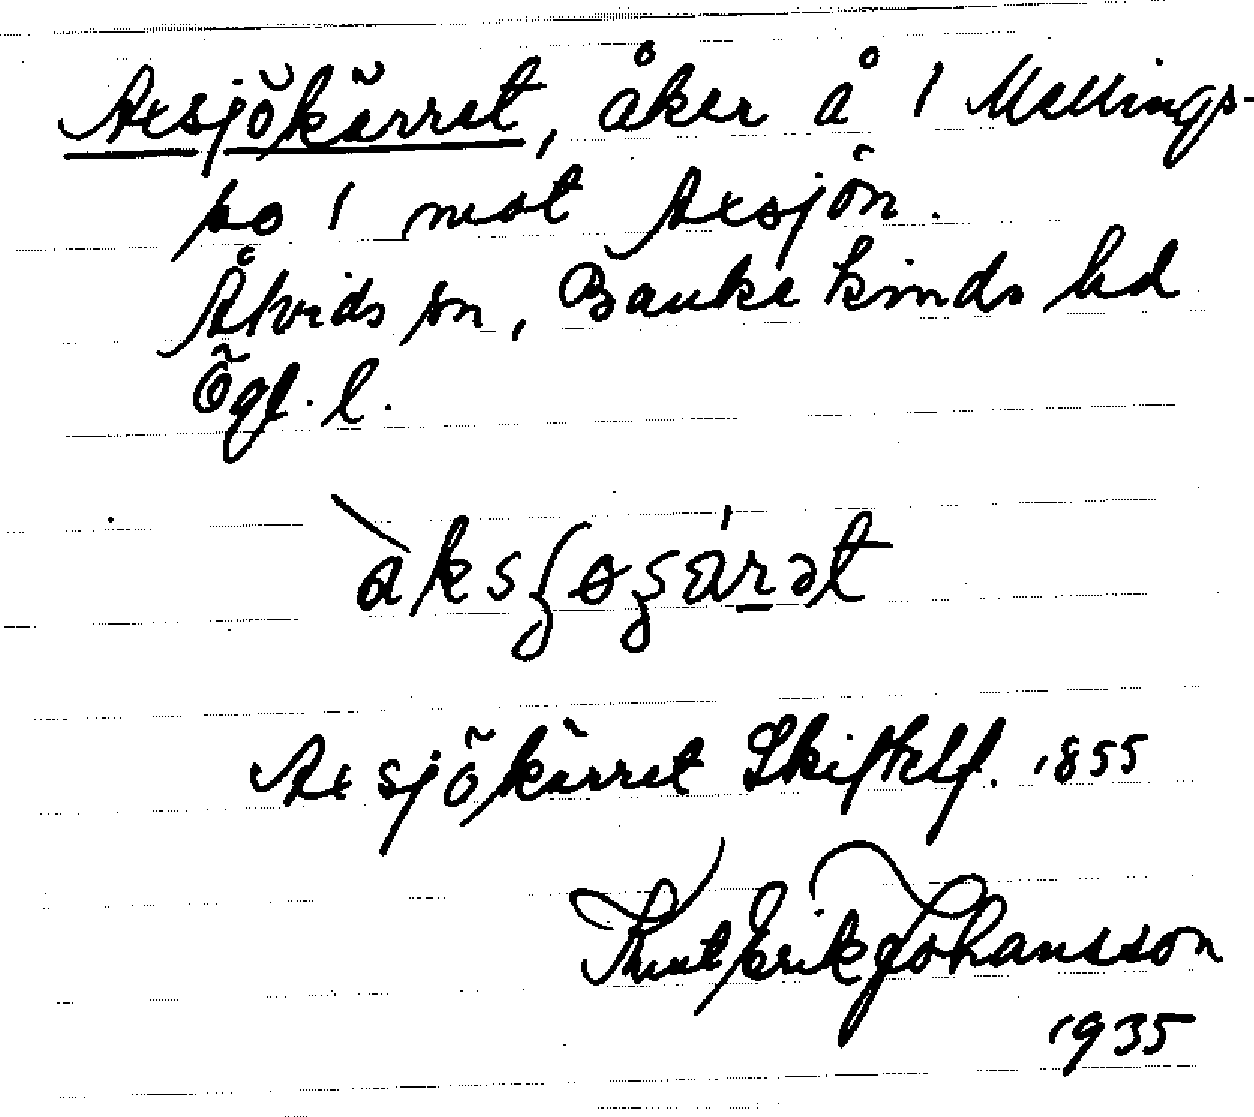 Axsjökärret, åker å 1 Mellings-
bo 1 mot Axsjön.
Åtvids sn, Bankekinds hd
Ögl. l.
Axsjökärret Skiftehf. 1855
Knut Erik Johansson
1935